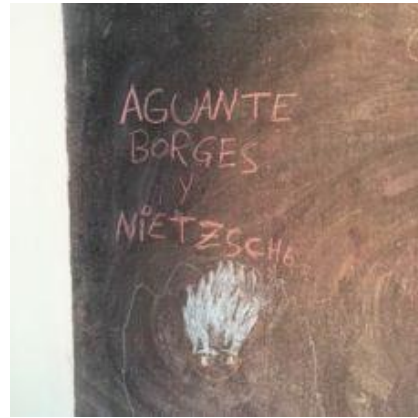 AGUANTE
BORGES
Y
NIETZSCHE